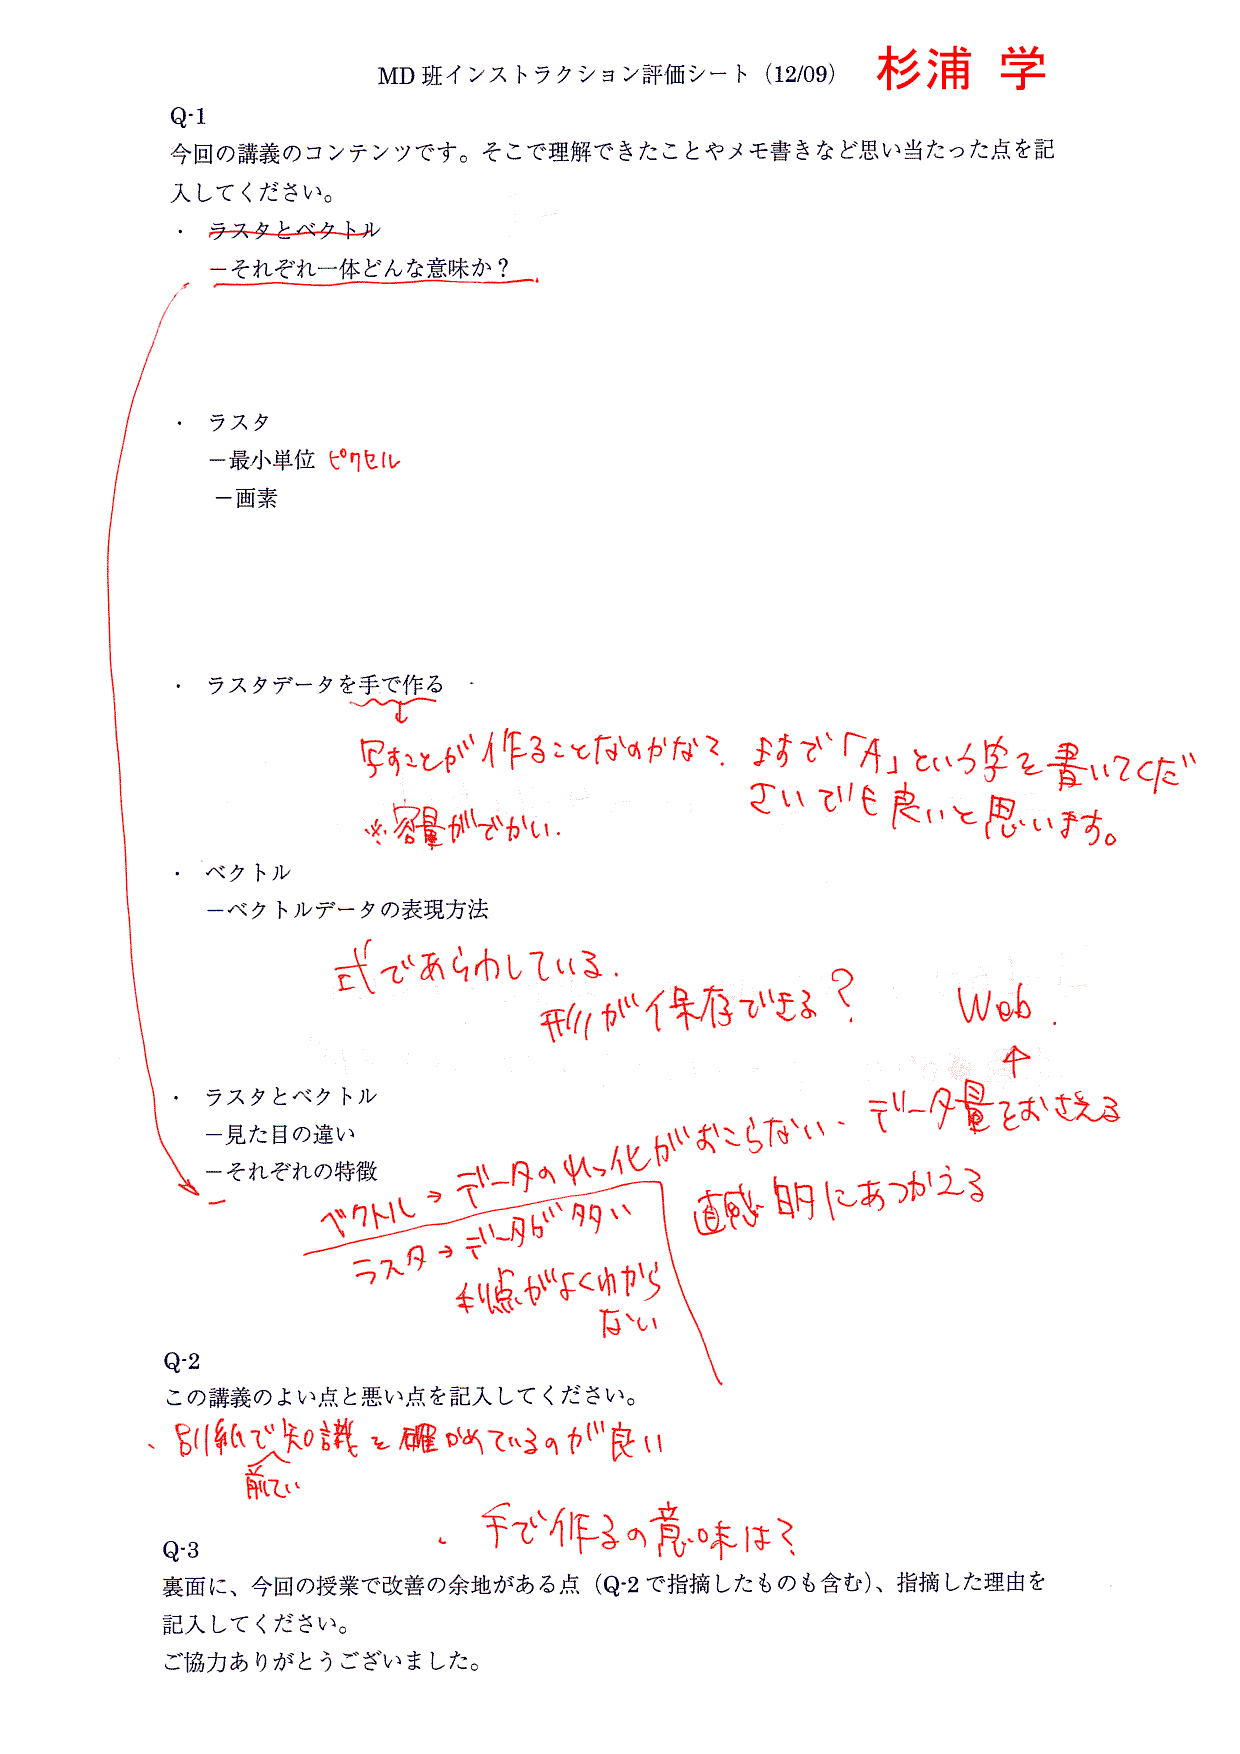 MD 班インストラクション評価シート（12/09） 杉浦 学
Q-1
今回の講義のコンテンツです。そこで理解できたことやメモ書きなど思い当たった点を記
入してください。
・ ラスタとベクトル
－それぞれ一体どんな意味か？
・ ラスタ
－最小単位 ピクセル
－画素
・ ラスタデータを手で作る
写すことが作ることなのかな？ ますで「A」という字を書いてくだ
さいでも良いと思います。
※容量がでかい．
・ ベクトル
－ベクトルデータの表現方法
式であらわしている．
形が保存できる？ Web．
・ ラスタとベクトル
－見た目の違い
－それぞれの特徴
－
ベクトル → データのれっ化がおこらない、データ量をおさえる
ラスタ → データが多い 直感的にあつかえる
利点がよくわから
ない
Q-2
この講義のよい点と悪い点を記入してください。
、別紙で知識を確かめているのが良い
前てい
、手で作るの意味は？
Q-3
裏面に、今回の授業で改善の余地がある点（Q-2 で指摘したものも含む）、指摘した理由を
記入してください。
ご協力ありがとうございました。